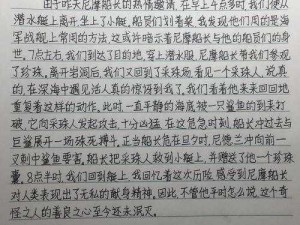 由于昨天尼摩船长的热情邀请,在早上4点多时,我们便从
潜水艇上离开坐上了小艇,船员们划着桨,我发现他们用的是海
军战舰上常用的方法,这或许暗示着尼摩船长与他的船员们的身
世。7点左右,我们到达了目的地,穿上潜水服,尼摩船长带我们参观
了珍珠,离开岩洞后,我们又回到了采珠场,看见一个采珠人,说真
的,在深海中遇见活人真的惊讶到了我。我们看着他来来回回地
重复着这样的动作。此时一直平静的海底被一只鲨鱼的到来打
破,它向采珠人发起攻击,十分凶猛,在这危急时刻,船长冲过去与
巨鲨展开一场殊死搏斗,正当船长危在旦夕时,尼德·兰冲向前一
叉刺中鲨鱼要害,船长把采珠人救到小艇上,并赠送了他一个珍珠
囊。8点半时,我们回到艇上,我回忆着这次历险,感受到尼摩船长
对人类表现出了无私的献身精神,因此,不管他平时怎么说,这个奇
怪之人的善良之心至今还未泯灭。